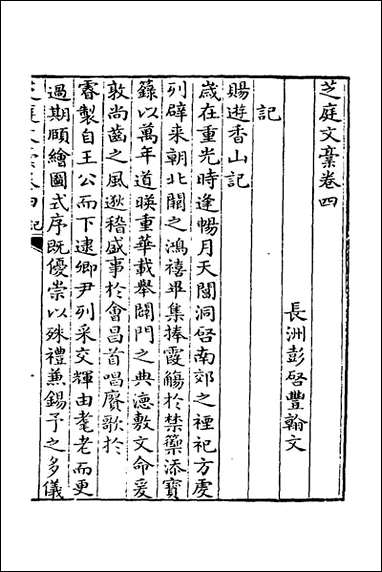 芝庭文稾卷四
長洲彭啓豐翰文
記
賜遊香山記
歲在重光時逢暢月天閶洞啓南郊之禋祀方虔
列辟来朝北闕之鴻禧畢集捧霞觴於禁籞添寳
籙以萬年道暎重華載舉闢門之典德敷文命爰
敦尚齒之風逖稽盛事於會昌首唱賡歌於
睿製自王公而下逮卿尹列采交輝由耄老而更
過期頤繪圖式序既優崇以殊禮兼錫予之多儀
芝庭文稾卷四 記